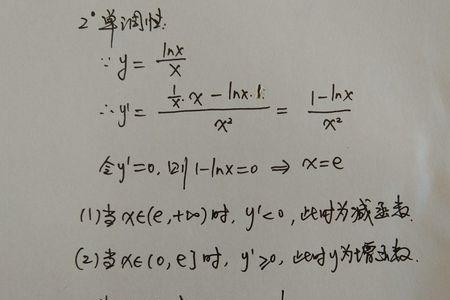 2° 单调性:
∵ y = lnx/x
∴ y' = (1/x · x − lnx · 1)/x² = (1−lnx)/x²
令y'=0, 则 1−lnx=0 ⇒ x=e
(1) 当 x∈(e,+∞) 时, y'<0, 此时为减函数.
(2) 当 x∈(0,e] 时, y'≥0, 此时y为增函数.